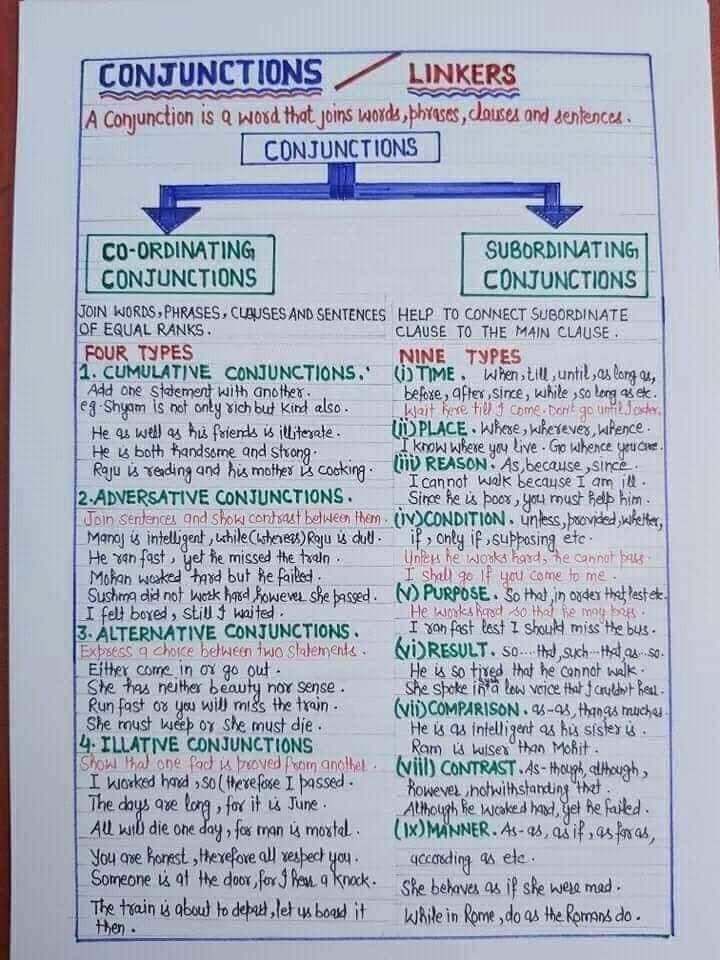 CONJUNCTIONS / LINKERS
A Conjunction is a word that joins words, phrases, clauses and sentences.
CONJUNCTIONS
CO-ORDINATING
CONJUNCTIONS
JOIN WORDS, PHRASES, CLAUSES AND SENTENCES
OF EQUAL RANKS.
FOUR TYPES
1. CUMULATIVE CONJUNCTIONS.
Add one statement with another.
eg-Shyam is not only rich but kind also.
He as well as his friends is illiterate.
He is both handsome and strong.
Raju is reading and his mother is cooking.
2.ADVERSATIVE CONJUNCTIONS.
Join sentences and show contrast between them.
Manoj is intelligent, while(whereas) Raju is dull.
He ran fast, yet he missed the train.
Mohan worked hard but he failed.
Sushma did not work hard, however she passed.
I felt bored, still I waited.
3. ALTERNATIVE CONJUNCTIONS.
Express a choice between two statements.
Either come in or go out.
She has neither beauty nor sense.
Run fast or you will miss the train.
She must weep or she must die.
4. ILLATIVE CONJUNCTIONS
Show that one fact is proved from another.
I worked hard, so (therefore I passed.
The days are long, for it is June.
All will die one day, for man is mortal.
You are honest, therefore all respect you.
Someone is at the door, for I hear a knock.
The train is about to depart, let us board it
then.
SUBORDINATING
CONJUNCTIONS
HELP TO CONNECT SUBORDINATE
CLAUSE TO THE MAIN CLAUSE.
NINE TYPES
(i) TIME. When, till, until, as long as,
before, after, since, while, so long as etc.
Wait here till I come. Don't go until I order.
(ii) PLACE. Where, wherever, whence.
I know where you live. Go whence you came.
(iii) REASON. As, because, since.
I cannot walk because I am ill.
Since he is poor, you must help him.
(iv) CONDITION. unless, provided, whether,
if, only if, supposing etc.
Unless he works hard, he cannot pass.
I shall go if you come to me.
(v) PURPOSE. So that, in order that, lest etc.
He works hard so that he may pass.
I ran fast lest I should miss the bus.
(vi) RESULT. so....that, such...that, as...so.
He is so tired that he cannot walk.
She spoke in such a low voice that I couldn't hear.
(vii) COMPARISON. as-as, than, as much as.
He is as intelligent as his sister is.
Ram is wiser than Mohit.
(viii) CONTRAST. As-though, although,
however, notwithstanding that.
Although he worked hard, yet he failed.
(ix) MANNER. As-as, as if, as far as,
according as etc.
She behaves as if she were mad.
While in Rome, do as the Romans do.